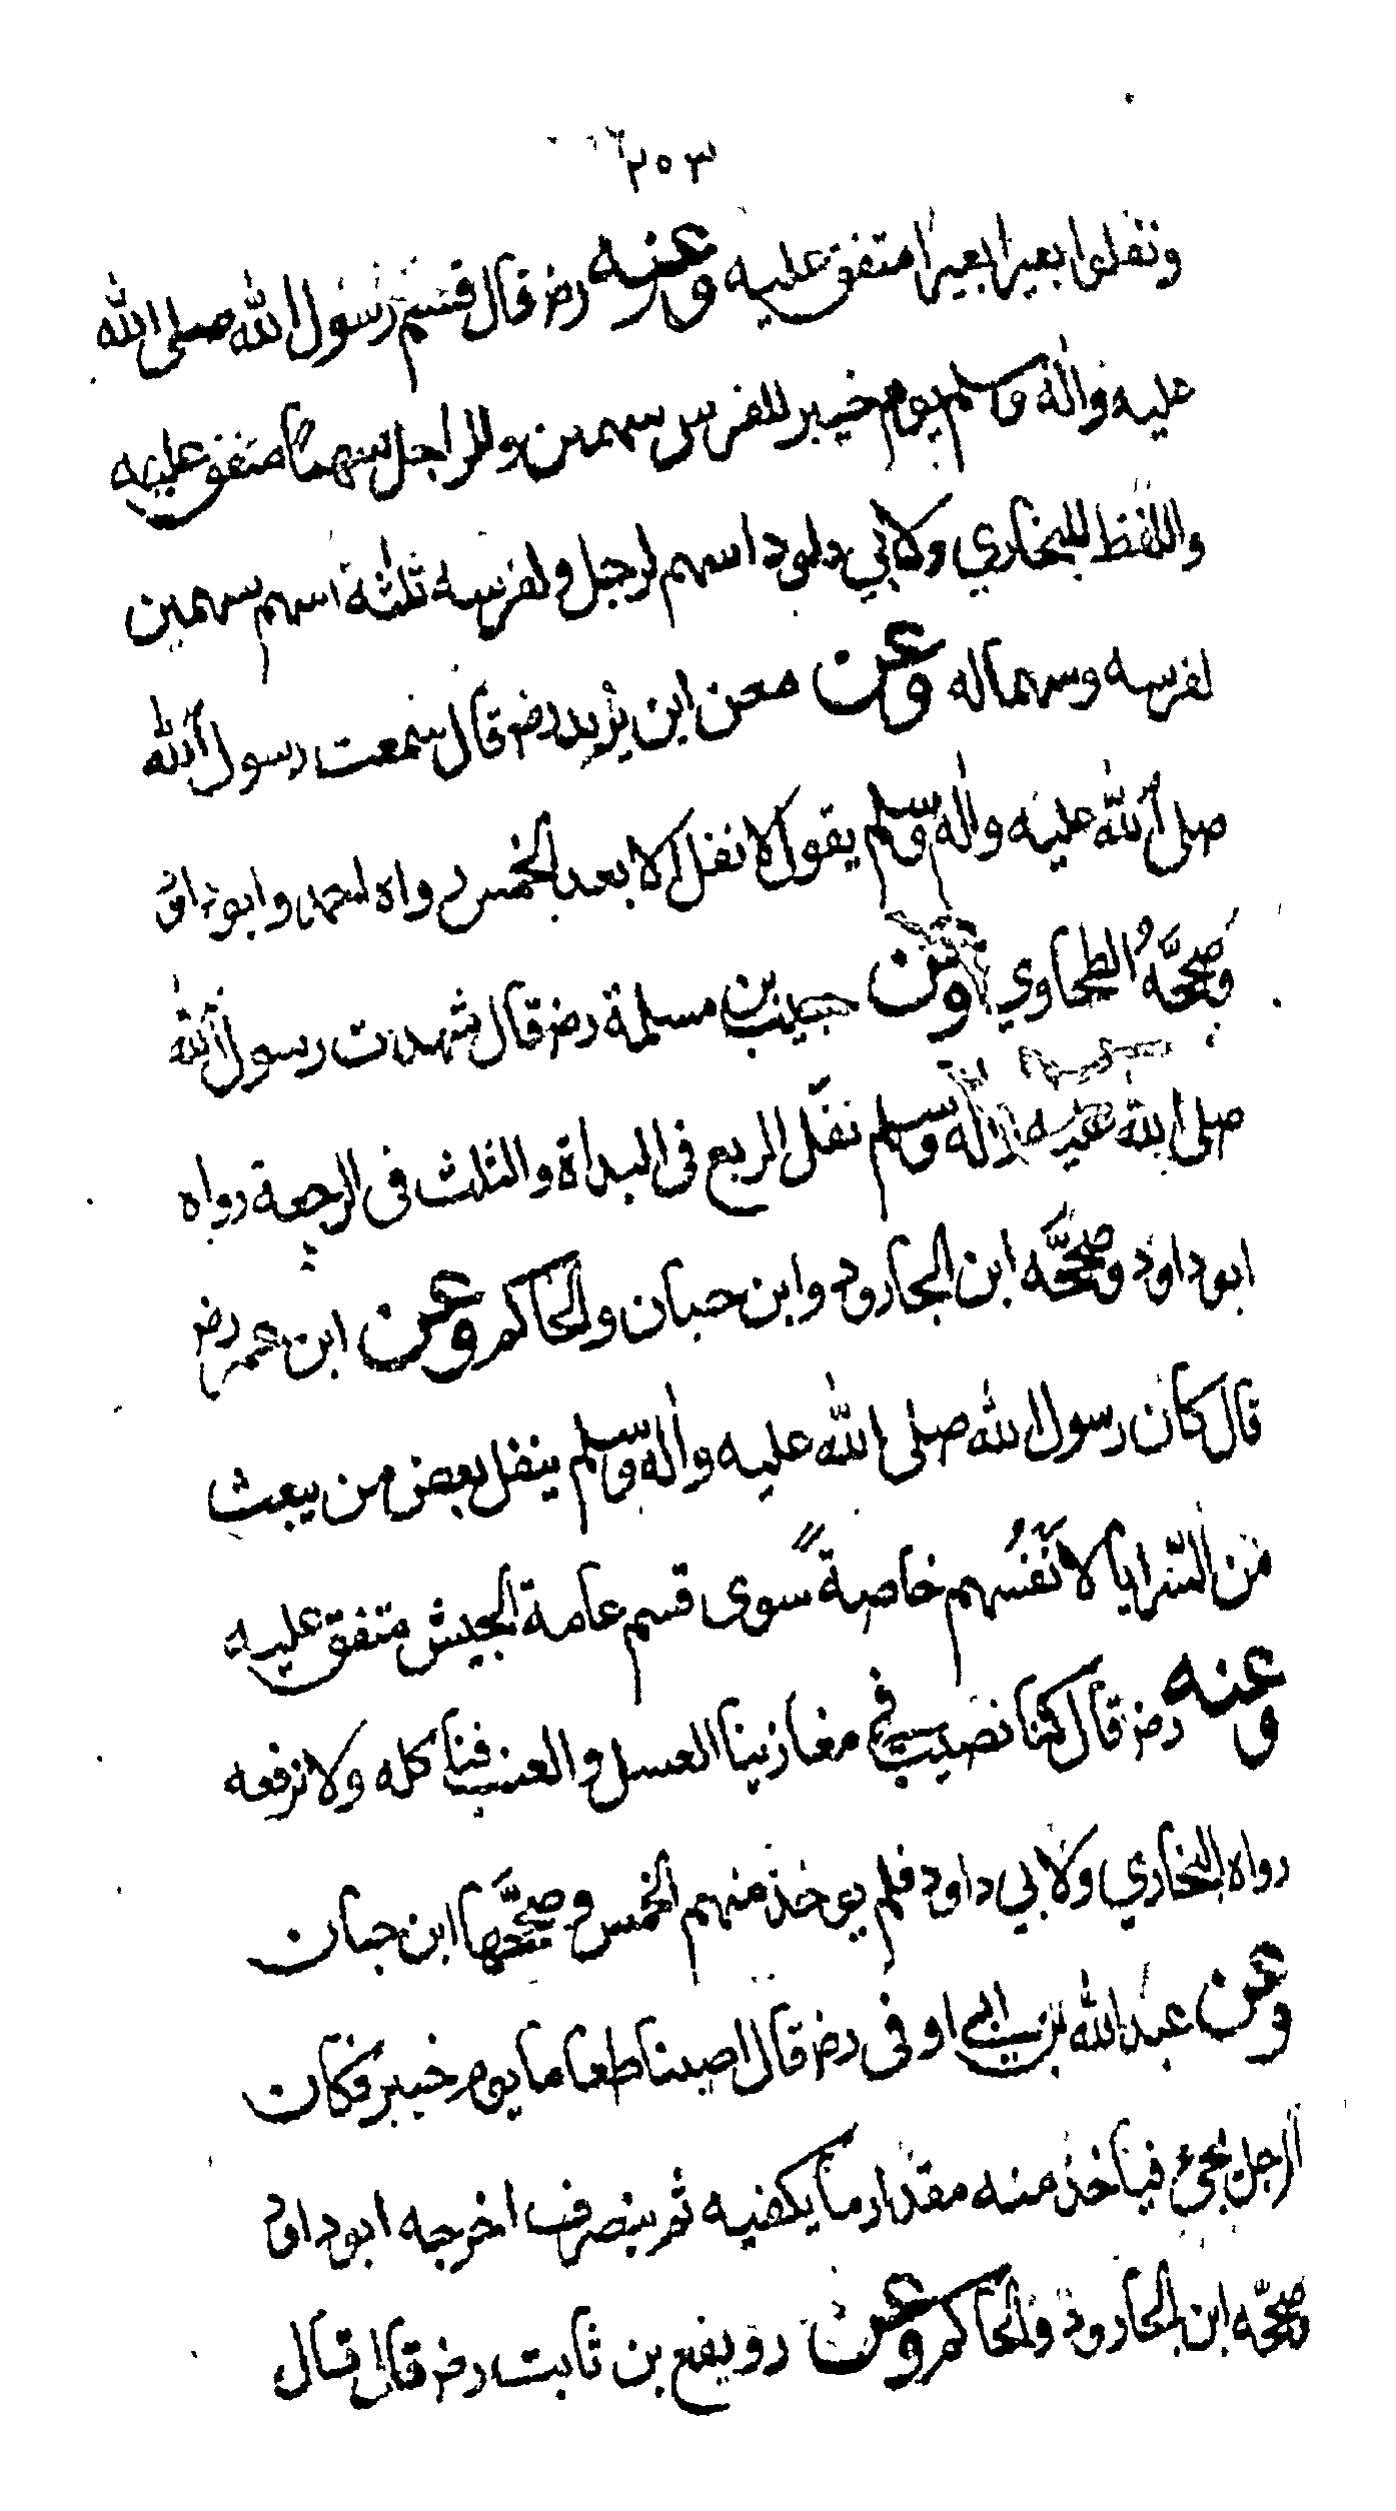 ٢٥٣
ونفلوا بعيرا بعيرا متفق عليه وعنه رضـ قال قسم رسول الله صلى الله
عليه واله وسلم يوم خيبر للفرس سهمين وللراجل سهما متفق عليه
واللفظ للبخاري ولابي داود اسهم لرجل ولفرسه ثلثة اسهم سهمين
لفرسه وسهما له وعن معن ابن يزيد رضـ قال سمعت رسول الله
صلى الله عليه واله وسلم يقول لا نفل الا بعد الخمس رواه احمد وابوداود
وصححَّهُ الطحاوي وعن حبيب بن مسلمة رضـ قال شهدت رسول الله
صلى الله عليه واله وسلم نفّل الربع في البداة والثلث في الرجعة رواه
ابو داود وصححَّه ابن الجارود وابن حبان والحاكم وعن ابن عمر رضـ
قال كان رسول الله صلى الله عليه واله وسلم ينفل بعض من يبعث
من السّرايا لانفُسهم خاصةً سوى قسم عامة الجيش متفق عليه
وعنه رضـ قال كنا نصيب في مغازينا العسل والعنب فناكله ولا نرفعه
رواه البخاري ولابي داود فلم يوخذ منهم الخمس وصححَّها ابن حبان
وعن عبد الله بن ابي اوفى رضـ قال اصبنا طعاما يوم خيبر فكان
الرجل يجيء فياخذ منه مقدار ما يكفيه ثم ينصرف اخرجه ابو داود
وصححّه ابن الجارود والحاكم وعن رويفع بن ثابت رضـ قال قال